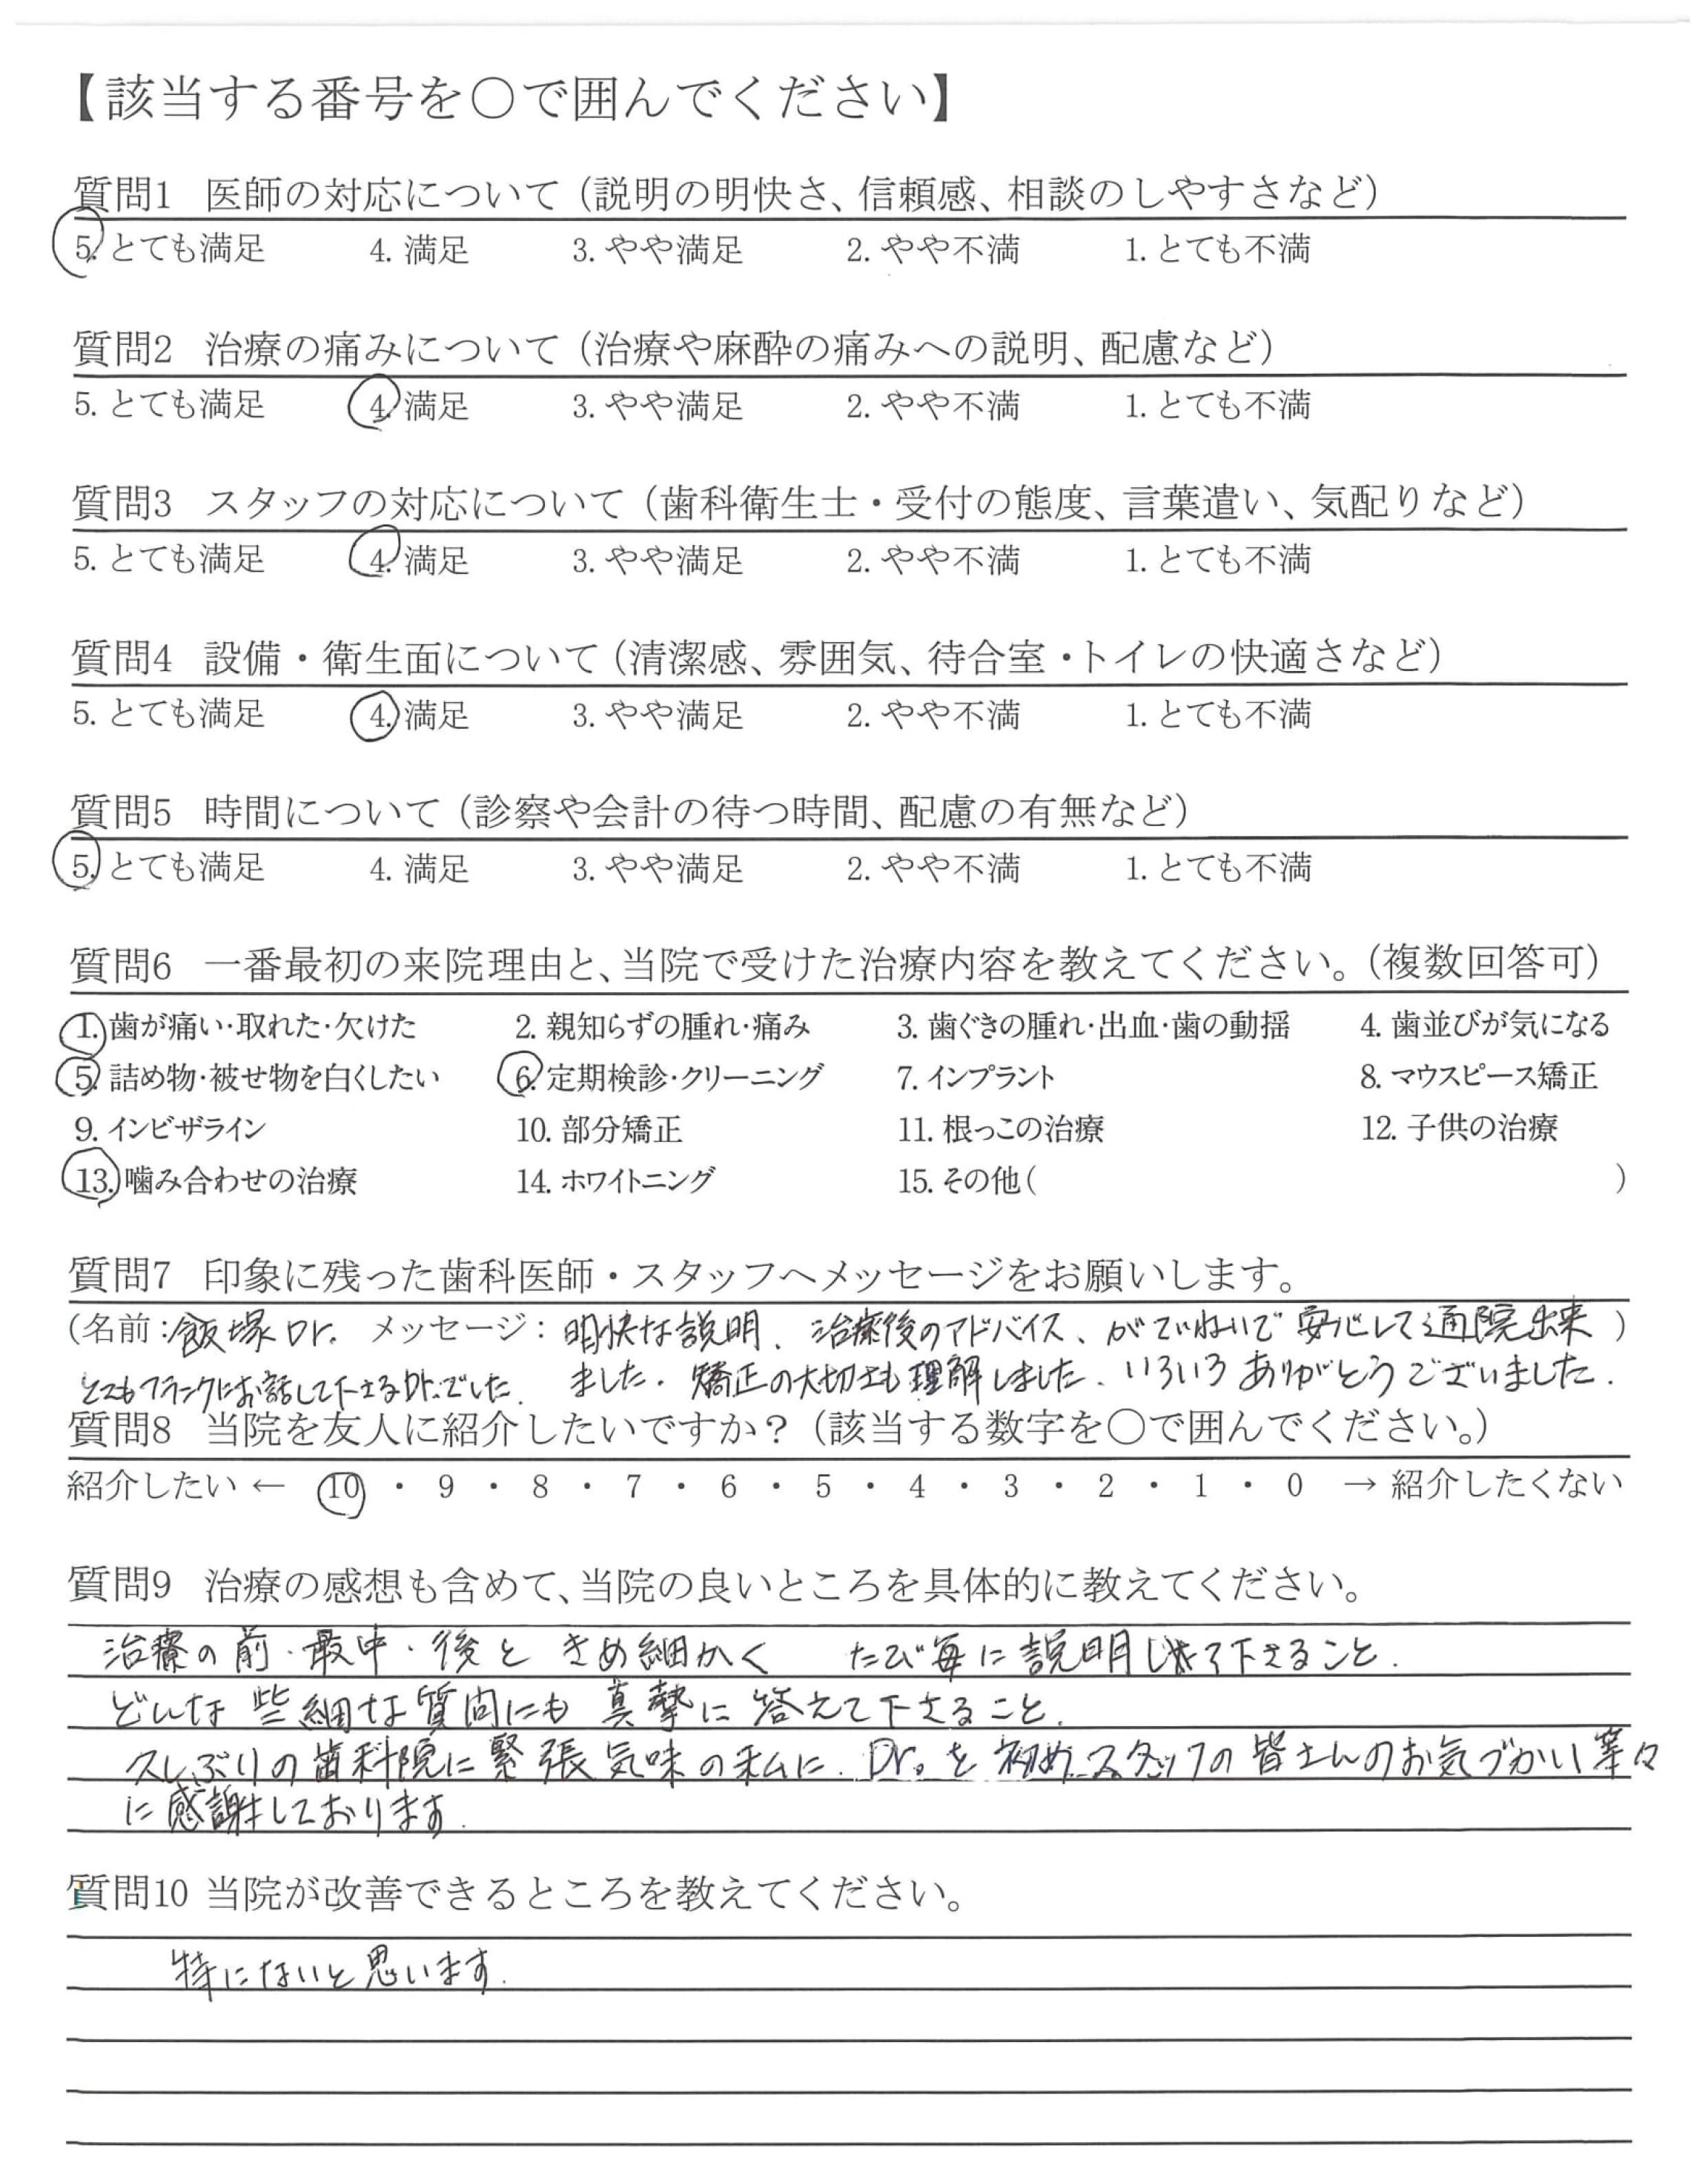 【該当する番号を○で囲んでください】
質問1 医師の対応について（説明の明快さ、信頼感、相談のしやすさなど）
5. とても満足 4. 満足 3. やや満足 2. やや不満 1. とても不満
質問2 治療の痛みについて（治療や麻酔の痛みへの説明、配慮など）
5. とても満足 4. 満足 3. やや満足 2. やや不満 1. とても不満
質問3 スタッフの対応について（歯科衛生士・受付の態度、言葉遣い、気配りなど）
5. とても満足 4. 満足 3. やや満足 2. やや不満 1. とても不満
質問4 設備・衛生面について（清潔感、雰囲気、待合室・トイレの快適さなど）
5. とても満足 4. 満足 3. やや満足 2. やや不満 1. とても不満
質問5 時間について（診察や会計の待つ時間、配慮の有無など）
5. とても満足 4. 満足 3. やや満足 2. やや不満 1. とても不満
質問6 一番最初の来院理由と、当院で受けた治療内容を教えてください。（複数回答可）
1. 歯が痛い・取れた・欠けた 2. 親知らずの腫れ・痛み 3. 歯ぐきの腫れ・出血・歯の動揺 4. 歯並びが気になる
5. 詰め物・被せ物を白くしたい 6. 定期検診・クリーニング 7. インプラント 8. マウスピース矯正
9. インビザライン 10. 部分矯正 11. 根っこの治療 12. 子供の治療
13. 噛み合わせの治療 14. ホワイトニング 15. その他（ ）
質問7 印象に残った歯科医師・スタッフへメッセージをお願いします。
（名前：飯塚Dr. メッセージ：明快な説明、治療後のアドバイス、がていねいで安心して通院出来）
とてもフランクにお話して下さるDr.でした. ました. 矯正の大切さも理解しました. いろいろありがとうございました.
質問8 当院を友人に紹介したいですか？（該当する数字を○で囲んでください。）
紹介したい ← 10 ・ 9 ・ 8 ・ 7 ・ 6 ・ 5 ・ 4 ・ 3 ・ 2 ・ 1 ・ 0 → 紹介したくない
質問9 治療の感想も含めて、当院の良いところを具体的に教えてください。
治療の前・最中・後と きめ細かく たび毎に説明して下さること.
どんな些細な質問にも 真摯に答えて下さること.
久しぶりの歯科院に緊張気味の私に. Dr.を初めスタッフの皆さんのお気づかい等々
に感謝しております.
質問10 当院が改善できるところを教えてください。
特にないと思います.